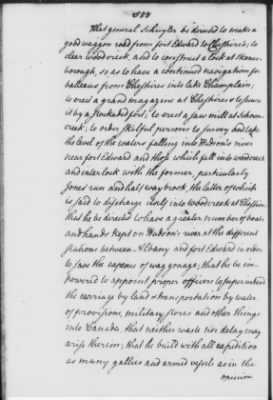 588
That general Schuyler be directed to make a
good waggon road from fort Edward to Cheshire's; to
clear wood creek, and to construct a lock at Skenes-
borough, so as to have a continued navigation for
batteaus from Cheshires into lake Champlain;
to erect a grand magazine at Cheshires & to secure
it by a stockaded fort; to erect a saw mill at Schoon
creek; to order skilful persons to survey and take
the level of the waters falling into Hudson's river
near fort Edward and those which fall into wood creek
and interlock with the former, particularly
Jones run and half way brook, the latter of which
is said to discharge itself into wood creek at Cheshires;
that he be directed to have a greater number of boats
and hands kept on Hudson's river at the different
stations between Albany and fort Edward in order
to save the expence of waggonage; that he be im-
powered to appoint proper officers to superintend
the carriage by land & transportation by water
of provisions, military stores and other things
into Canada, that neither waste nor delay may
arise therein; that he build with all expedition
as many gallies and armed vessels as in the
opinion